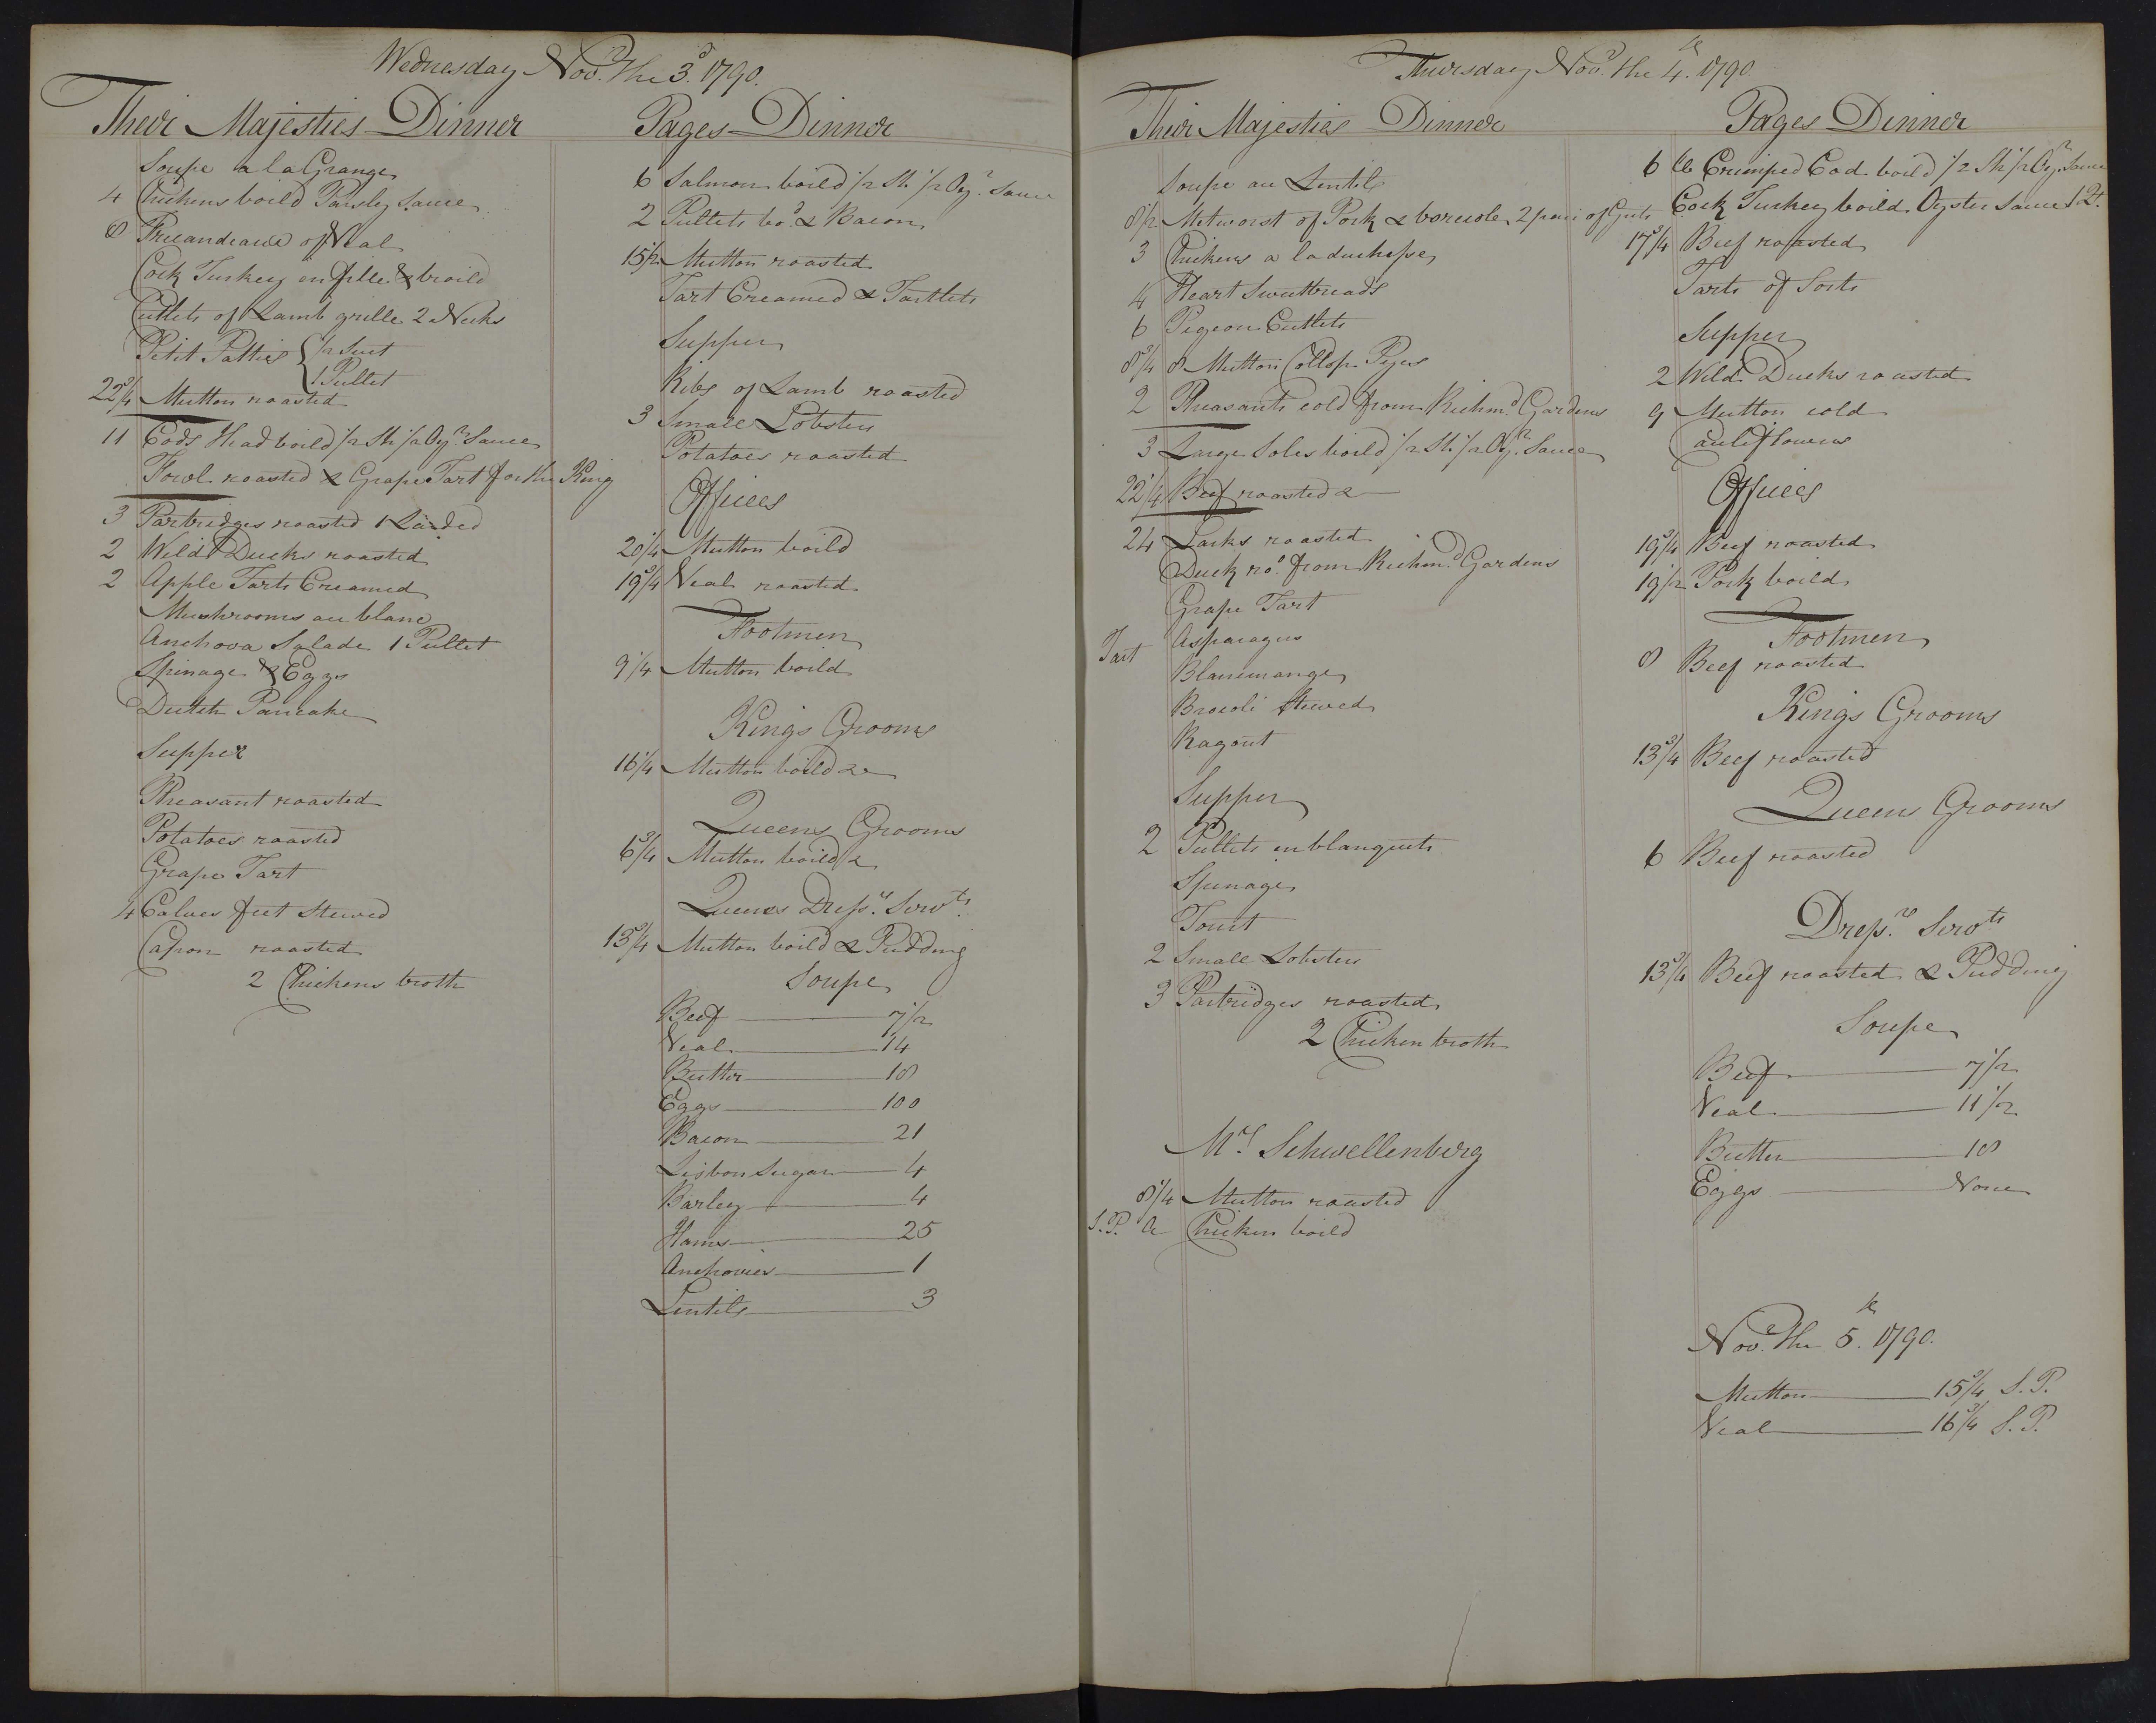 Wednesday Novr. the 3d. 1790.
Their Majesties Dinner
Soupe a la Grange
4 Chickens boild Parsley Sauce
8 Fricandeaux of Veal
Cock Turkey en fille & broild
Cutlets of Lamb grille 2 Necks
Petit Patties { 1/2 Suet
1 Pullet
22 3/4 Mutton roasted
11 Cods Head boild 1/2 Sh: 1/2 Oyr. Sauce
Fowl roasted & Grape Tart for the King
3 Partridges roasted 1 Larded
2 Wild Ducks roasted
2 Apple Tarts Creamed
Mushrooms au blanc
Anchova Salade 1 Pullet
Spinage & Eggs
Dutch Pancake
Supper
Pheasant roasted
Potatoes roasted
Grape Tart
4 Calves feet Stewed
Capon roasted
2 Chickens broth
Pages Dinner
6 Salmon boild 1/2 Sh. 1/2 Oyr. Sauce
2 Pullets bod. & Bacon
15 1/2 Mutton roasted
Tart Creamed & Tartlets
Supper
Ribs of Lamb roasted
3 Small Lobsters
Potatoes roasted
Offices
20 1/4 Mutton boild
19 3/4 Veal roasted
Footmen
9 1/4 Mutton boild
Kings Grooms
16 1/4 Mutton boild &
Queens Grooms
6 3/4 Mutton boild &
Queens Dressrs. Servts.
13 3/4 Mutton boild & Pudding
Soupe
Beef 7 1/2
Veal 14
Butter 18
Eggs 100
Bacon 21
Lisbon Sugar 4
Barley 4
Hams 25
Anchovies 1
Lentils 3
Thursday Novr. the 4th. 1790.
Their Majesties Dinner
Soupe au Lentils
8 1/2 Metworst of Pork & borecole 2 pair of Guts
3 Chickens a la duchesse
4 Heart Sweetbreads
6 Pigeon Cutlets
8 3/4 8 Mutton Collop Pyes
2 Pheasants cold from Richmd. Gardens
3 Large Soles boild 1/2 Sh: 1/2 Oyr. Sauce
22 1/4 Beef roasted &
24 Larks roasted
Duck rod. from Richmd. Gardens
Grape Tart
Tart Asparagus
Blancmange
Brocoli Stewed
Ragout
Supper
2 Pullets en blanquets
Spinage
Tourt
2 Small Lobsters
3 Partridges roasted
2 Chicken broth
Mrs. Schwellenberg
8 1/4 Mutton roasted
S.P. a Chicken boild
Pages Dinner
6 lb Crimped Cod boild 1/2 Sh 1/2 Oyr. Sauce
Cock Turkey boild Oyster Sauce 1 Qt.
17 3/4 Beef roasted
Tarts of Sorts
Supper
2 Wild Ducks roasted
9 Mutton cold
Cauliflowers
Offices
19 3/4 Beef roasted
19 1/2 Pork boild
Footmen
8 Beef roasted
Kings Grooms
13 3/4 Beef roasted
Queens Grooms
6 Beef roasted
Dressrs. Servts
13 3/4 Beef roasted & Pudding
Soupe
Beef 7 1/2
Veal 11 1/2
Butter 18
Eggs None
Novr. the 5th. 1790.
Mutton 15 3/4 S.P.
Veal 16 3/4 S.P.